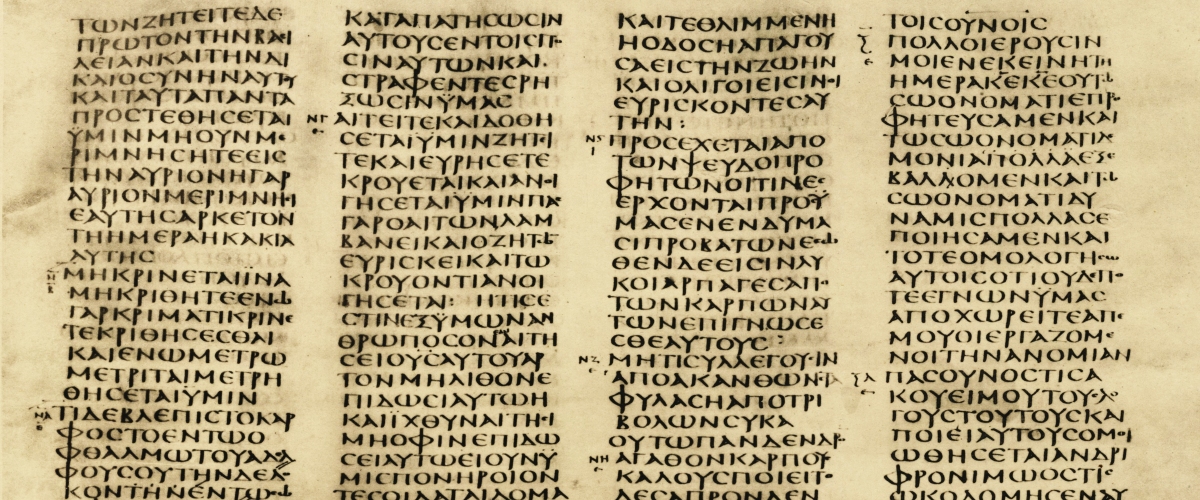 ΤΩΝΖΗΤΕΙΤΕΔΕ
ΠΡΩΤΟΝΤΗΝΒΑϹΙ
ΛΕΙΑΝΚΑΙΤΗΝΔΙ
ΚΑΙΟϹΥΝΗΝΑΥΤΟΥ
ΚΑΙΤΑΥΤΑΠΑΝΤΑ
ΠΡΟϹΤΕΘΗϹΕΤΑΙ
ΫΜΙΝΜΗΟΥΝΜΕ
ΡΙΜΝΗϹΗΤΕΕΙϹ
ΤΗΝΑΥΡΙΟΝΗΓΑΡ
ΑΥΡΙΟΝΜΕΡΙΜΝΗϹΙ
ΕΑΥΤΗϹΑΡΚΕΤΟΝ
ΤΗΗΜΕΡΑΗΚΑΚΙΑ
ΑΥΤΗϹ
ΜΗΚΡΙΝΕΤΑΙΪΝΑ
ΜΗΚΡΙΘΗΤΕΕΝΩ
ΓΑΡΚΡΙΜΑΤΙΚΡΙΝΕ
ΤΕΚΡΙΘΗϹΕϹΘΑΙ
ΚΑΙΕΝΩΜΕΤΡΩ
ΜΕΤΡΙΤΑΙΜΕΤΡΗ
ΘΗϹΕΤΑΙΫΜΙΝ
ΤΙΔΕΒΛΕΠΙϹΤΟΚΑΡ
ΦΟϹΤΟΕΝΤΩΟ
ΦΘΑΛΜΩΤΟΥΑΔΕΛ
ΦΟΥϹΟΥΤΗΝΔΕΔΟ
ΚΟΝΤΗΝΕΝΤΩϹΩ
ΚΑΤΑΠΑΤΗϹΩϹΙΝ
ΑΥΤΟΥϹΕΝΤΟΙϹΠΟ
ϹΙΝΑΥΤΩΝΚΑΙ
ϹΤΡΑΦΕΝΤΕϹΡΗ
ΞΩϹΙΝΫΜΑϹ
ΝΓ ΑΙΤΕΙΤΕΚΑΙΔΟΘΗ
ϹΕΤΑΙΫΜΙΝΖΗΤΙ
ΤΕΚΑΙΕΥΡΗϹΕΤΕ
ΚΡΟΥΕΤΑΙΚΑΙΑΝΟΙ
ΓΗϹΕΤΑΙΫΜΙΝΠΑϹ
ΓΑΡΟΑΙΤΩΝΛΑΜ
ΒΑΝΕΙΚΑΙΟΖΗΤΩ
ΕΥΡΙϹΚΕΙΚΑΙΤΩ
ΚΡΟΥΟΝΤΙΑΝΟΙ
ΓΗϹΕΤΑΙ: ΗΤΙϹΕ
ϹΤΙΝΕΞΫΜΩΝΑΝ
ΘΡΩΠΟϹΟΝΑΙΤΗ
ϹΕΙΟΥϹΑΥΤΟΥΑΡ
ΤΟΝΜΗΛΙΘΟΝΕ
ΠΙΔΩϹΙΑΥΤΩΗ
ΚΑΙΪΧΘΥΝΑΙΤΗϹΙ
ΜΗΟΦΙΝΕΠΙΔΩ
ϹΕΙΑΥΤΩΕΙΟΥΝΫ
ΜΙϹΠΟΝΗΡΟΙΟΝ
ΤΕϹΟΙΔΑΤΑΙΔΟΜΑ
ΚΑΙΤΕΘΛΙΜΜΕΝΗ
ΗΟΔΟϹΗΑΠΑΓΟΥ
ϹΑΕΙϹΤΗΝΖΩΗΝ
ΚΑΙΟΛΙΓΟΙΕΙϹΙΝΟΙ
ΕΥΡΙϹΚΟΝΤΕϹΑΥ
ΤΗΝ:
ΝϚ ΠΡΟϹΕΧΕΤΑΙΑΠΟ
ΤΩΝΨΕΥΔΟΠΡΟ
ΦΗΤΩΝΟΙΤΙΝΕϹ
ΕΡΧΟΝΤΑΙΠΡΟΫ
ΜΑϹΕΝΕΝΔΥΜΑ
ϹΙΠΡΟΒΑΤΩΝΕϹΩ
ΘΕΝΔΕΕΙϹΙΝΛΥ
ΚΟΙΑΡΠΑΓΕϹΑΠΟ
ΤΩΝΚΑΡΠΩΝΑΥ
ΤΩΝΕΠΙΓΝΩϹΕ
ϹΘΕΑΥΤΟΥϹ:
ΝΖ ΜΗΤΙϹΥΛΛΕΓΟΥϹΙΝ
ΑΠΟΑΚΑΝΘΩΝϹΤΑ
ΦΥΛΑϹΗΑΠΟΤΡΙ
ΒΟΛΩΝϹΥΚΑ
ΟΥΤΩΠΑΝΔΕΝΔΡ
ΝΗ ΑΓΑΘΟΝΚΑΡΠΟΥϹ
ΚΑΛΟΥϹΠΟΙΕΙΤΟ
ΔΕϹΑΠΡΟΝΔΕΝ
ΤΟΙϹΟΥΝΟΙϹ
ΠΟΛΛΟΙΕΡΟΥϹΙΝ
ΜΟΙΕΝΕΚΕΙΝΗΤΗ
ΗΜΕΡΑΚΕΚΕΟΥΤΩ
ϹΩΟΝΟΜΑΤΙΕΠΡΟ
ΦΗΤΕΥϹΑΜΕΝΚΑΙ
ΤΩϹΩΟΝΟΜΑΤΙΔΑΙ
ΜΟΝΙΑΠΟΛΛΑΕΞΕ
ΒΑΛΛΟΜΕΝΚΑΙΤΩ
ϹΩΟΝΟΜΑΤΙΔΥ
ΝΑΜΙϹΠΟΛΛΑϹΕ
ΠΟΙΗϹΑΜΕΝΚΑΙ
ΤΟΤΕΟΜΟΛΟΓΗϹΩ
ΑΥΤΟΙϹΟΤΙΟΥΔΕΠΟ
ΤΕΕΓΝΩΝΫΜΑϹ
ΑΠΟΧΩΡΕΙΤΕΑΠΕ
ΜΟΥΟΙΕΡΓΑΖΟΜΕ
ΝΟΙΤΗΝΑΝΟΜΙΑΝ
ΞΑ ΠΑϹΟΥΝΟϹΤΙϹΑ
ΚΟΥΕΙΜΟΥΤΟΥϹΛΟ
ΓΟΥϹΤΟΥΤΟΥϹΚΑΙ
ΠΟΙΕΙΑΥΤΟΥϹΟΜΟΙ
ΩΘΗϹΕΤΑΙΑΝΔΡΙ
ΦΡΟΝΙΜΩΟϹΤΙϹ
ΩΚΟΔΟΜΗϹΕΝΑΥ